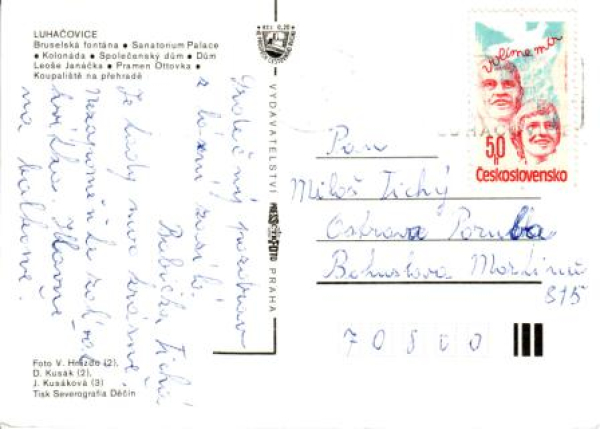 LUHAČOVICE
Bruselská fontána • Sanatorium Palace
• Kolonáda • Společenský dům • Dům
Leoše Janáčka • Pramen Ottovka •
Koupaliště na přehradě
VYDAVATELSTVÍ PRESSFOTO PRAHA
Srdečný pozdrav
z lázní zasílá
Babička Tichá
Je tady moc krásně.
Nezapomeňte zalévat
kytky. Hlavně
na balkoně!
volíme mír
50 h
Československo
LUHAČOVICE
Pan
Miloš Tichý
Ostrava Poruba
Bohuslava Martinů
815
70800
Foto V. Hnízdo (2),
D. Kusák (2),
J. Kusáková (3)
Tisk Severografia Děčín